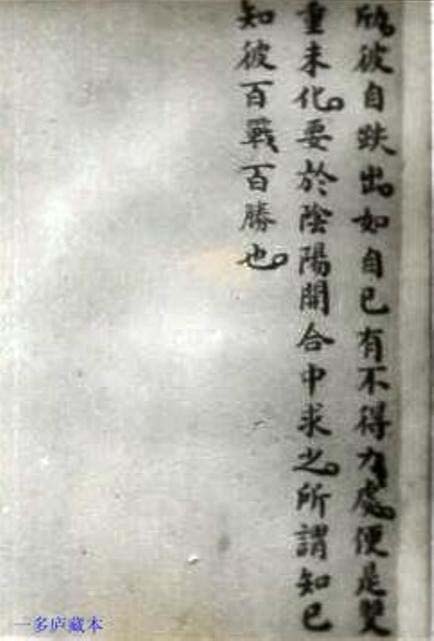 彼自跌出。如自己有不得力處。便是雙
重未化。要於陰陽開合中求之。所謂知己
知彼百戰百勝也。
一多庐藏本